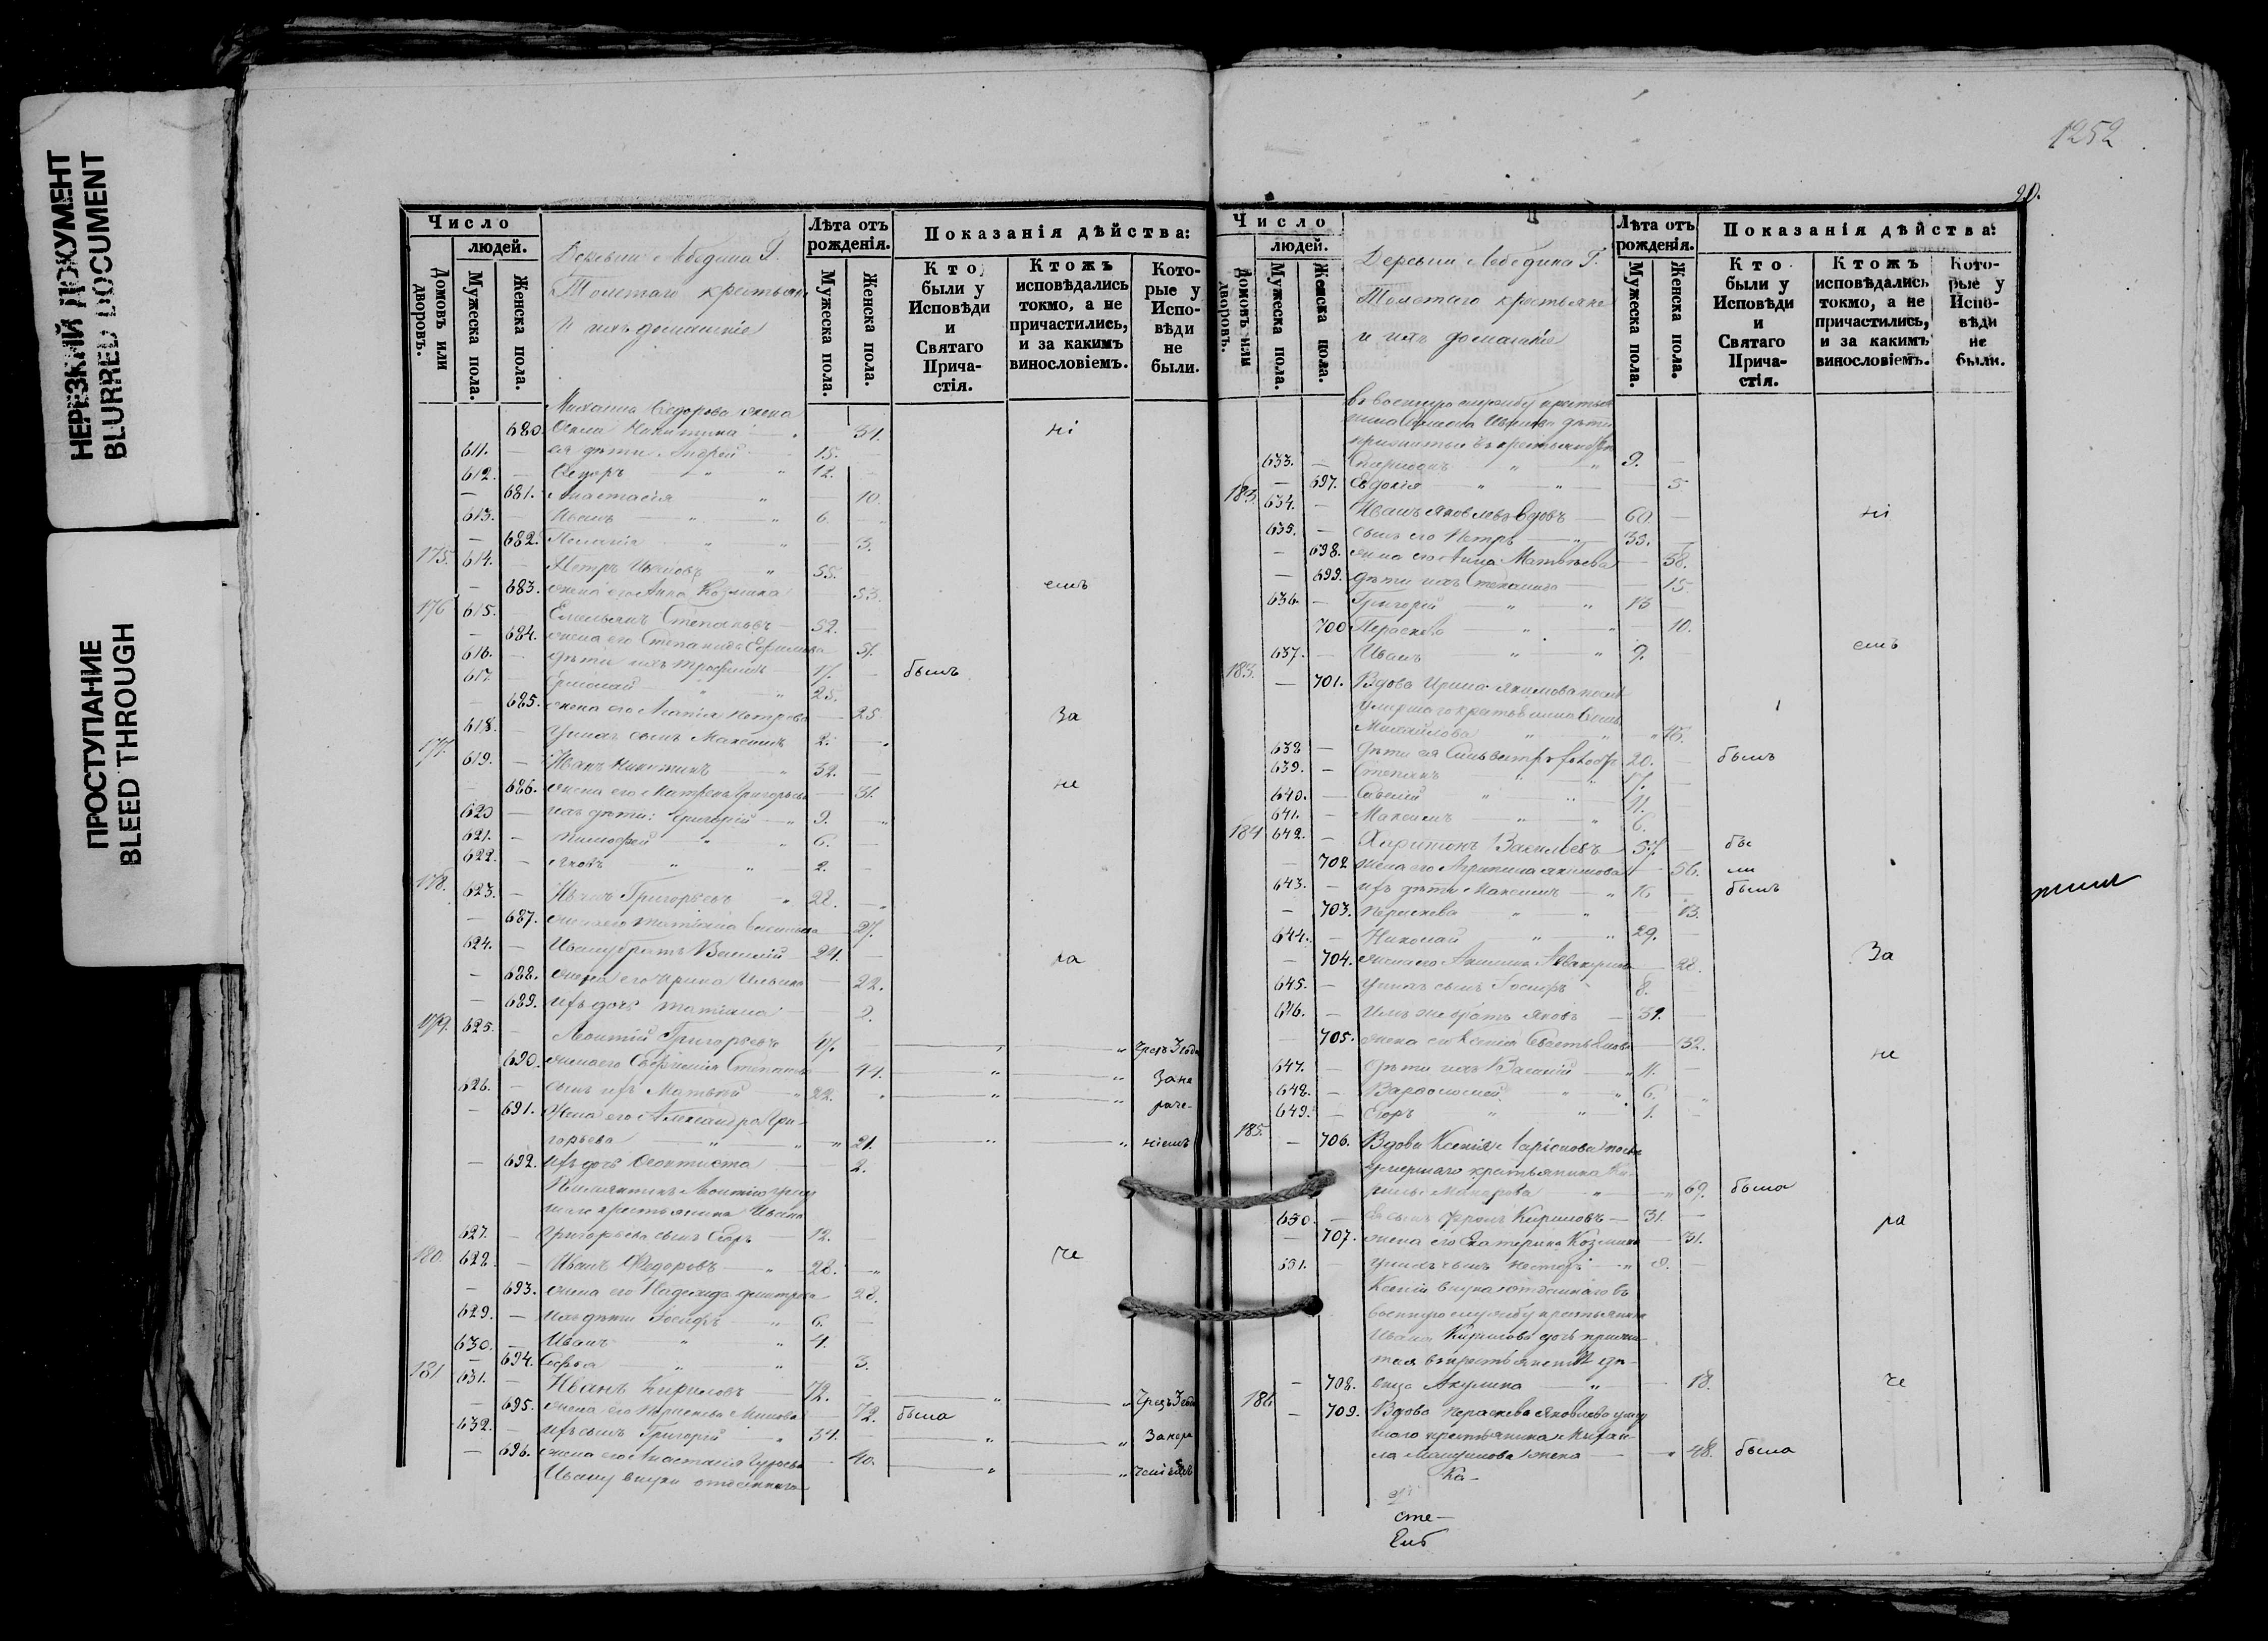 НЕРЕЗКИЙ ДОКУМЕНТ
BLURRED DOCUMENT
ПРОСТУПАНИЕ
BLEED THROUGH
Число
людей.
Домовъ или дворовъ.
Мужеска пола.
Женска пола.
Деревни Лебедина Г.
Толстаго крестьяне
и ихъ домашніе
Лѣта отъ рожденія.
Мужеска пола.
Женска пола.
Показанія дѣйства:
Кто были у Исповѣди и Святаго Прича-стія.
Ктожъ исповѣдались токмо, а не причастились, и за какимъ винословіемъ.
Кото-рые у Испо-вѣди не были.
Михаила Федорова жена
680. Никитина 34. ні
611. — ея дѣти Андрей 15.
612. — Федоръ " " 12.
— 681. Анастасія " 10.
613. — Иванъ " " 6.
— 682. " " 3.
175. 614. — Петръ Ивановъ " 55.
— 683. жена его Анна Козмина 53. емъ
176 615. — Емельянъ Степановъ — 52.
— 684. жена его Степанида Ефимова 51.
616. — дѣти ихъ Трофимъ — 17. былъ
617 — Ермолай " " 25.
— 685. жена его Агапія Петрова 25. За
618. — у нихъ сынъ Максимъ 2.
177. 619. — Иванъ Никитинъ " 32.
— 686. жена его Матрена Григорьева 31. не
620 — ихъ дѣти: Григорій " 9.
621. — Тимофей " " 6.
622. — Яковъ " " 2.
178. 623. — Иванъ Григорьевъ " 28.
— 687. жена его Татіана Васильева 27.
624. — Ивану братъ Василій — 24. ра
— 688. жена его Ирина Ильина 22.
— 689. ихъ дочь Татіана 2.
179. 625. — Леонтій Григорьевъ 47. " " Чрезъ 3 года
690. жена его Степанова 44. " " За не
626. — сынъ ихъ Матвѣй " 22. " " раче-
— 691. Жена его Александра Гри-
горьева " " " 21. " " ніемъ
— 692. ихъ дочь Феоктиста 2.
Племянникъ Леонтію
крестьянина Ивана
627. — Григорьева сынъ Егоръ — 12.
180. 628. — Иванъ Федоровъ " 28. че
— 693. жена его Надежда Димитріева 28.
629. — ихъ дѣти Іосифъ " 6.
630. — Иванъ " " 4.
— 694. Софья " " 3.
181 631. — Иванъ Кириловъ 72. " " Чрезъ 3 года
— 695. жена его Параскева 72. была
632. — ихъ сынъ Григорій " 34. " " За нера
— 696. жена его Анастасія 40. " "
Ивану внуки отданнаго
1252
90.
Число
людей.
Домовъ или дворовъ.
Мужеска пола.
Женска пола.
Деревни Лебедина Г.
Толстаго крестьяне
и ихъ домашніе
Лѣта отъ рожденія.
Мужеска пола.
Женска пола.
Показанія дѣйства:
Кто были у Исповѣди и Святаго Прича-стія.
Ктожъ исповѣдались токмо, а не причастились, и за какимъ винословіемъ.
Кото-рые у Испо-вѣди не были.
въ военную службу крестья-
нина Иванова дѣти
633. — Спиридонъ " " 9.
— 697. Евдокія " " 5
634. — Иванъ Яковлевъ вдовъ 60. ні
635. — сынъ его Петръ " 33.
— 698. жена его Анна Матвѣева 38.
— 699. дѣти ихъ Степанида 15
636. — Григорій " " 13
700 Параскева " " 10.
637. — Иванъ " " 9. емъ
183. — 701. Вдова Ирина Якимова послѣ
умершаго крестьянина
Михайлова " " "
638 — дѣти ея 20. былъ
639. — Степанъ " " 17.
640. — Савелій " " 11.
641. — Максимъ " " 6.
184 642. — Харитонъ Васильевъ 57. бы
— 702 жена его Агрипина Якимова 56. ли
643. — ихъ дѣти Максимъ " 16 былъ
— 703. Параскева " " 13.
644. — Николай " " 29.
— 704. жена его Акилина 28. За
645. — у нихъ сынъ Іосифъ 8.
646. — Имъ же братъ Яковъ — 31.
— 705. жена его Ксенія 32. не
647. — дѣти ихъ Василій " 11.
648. — Варфоломей " " 6.
649. — Егоръ " " 1.
185. — 706. Вдова Ксенія Ларіонова послѣ
умершаго крестьянина Ки-
рилы Макарова " " 69. была
650. — ея сынъ Фролъ Кириловъ — 31. ра
— 707. жена его Екатерина Козмина 31.
651. — у нихъ сынъ Несторъ " 8.
Ксеніи внука отданнаго въ
военную службу крестьянина
Ивана Кирилова дочь
— 708. вица Акулина " 18. че
186 — 709. Вдова Параскева Яковлева умер
шаго крестьянина Михай-
ла жена " 48. была
Ка-
сте-